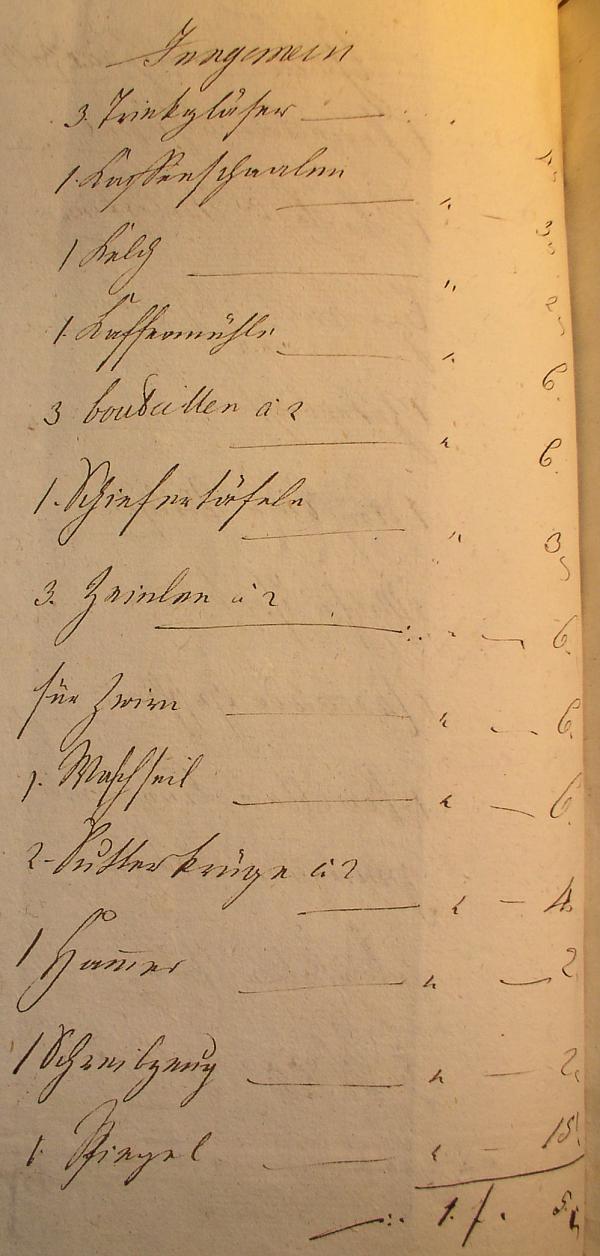 Inngemein
3. Trinkgläser
1. Kaffeeschaalen "
1 Kelch " 3
1. Kaffeemühle "
3 bouteillen à 2 " 6.
1. Schiefertäfeln " 3
3. Zainlen à 2 " 6.
für Zwirn " 6.
1. Waschseil " 6.
2. Sutterkrüge à 2 " 4
1 Ham̄er " 2
1 Schreibzeug " 2.
1. Spiegel " 15.
1. f. 5